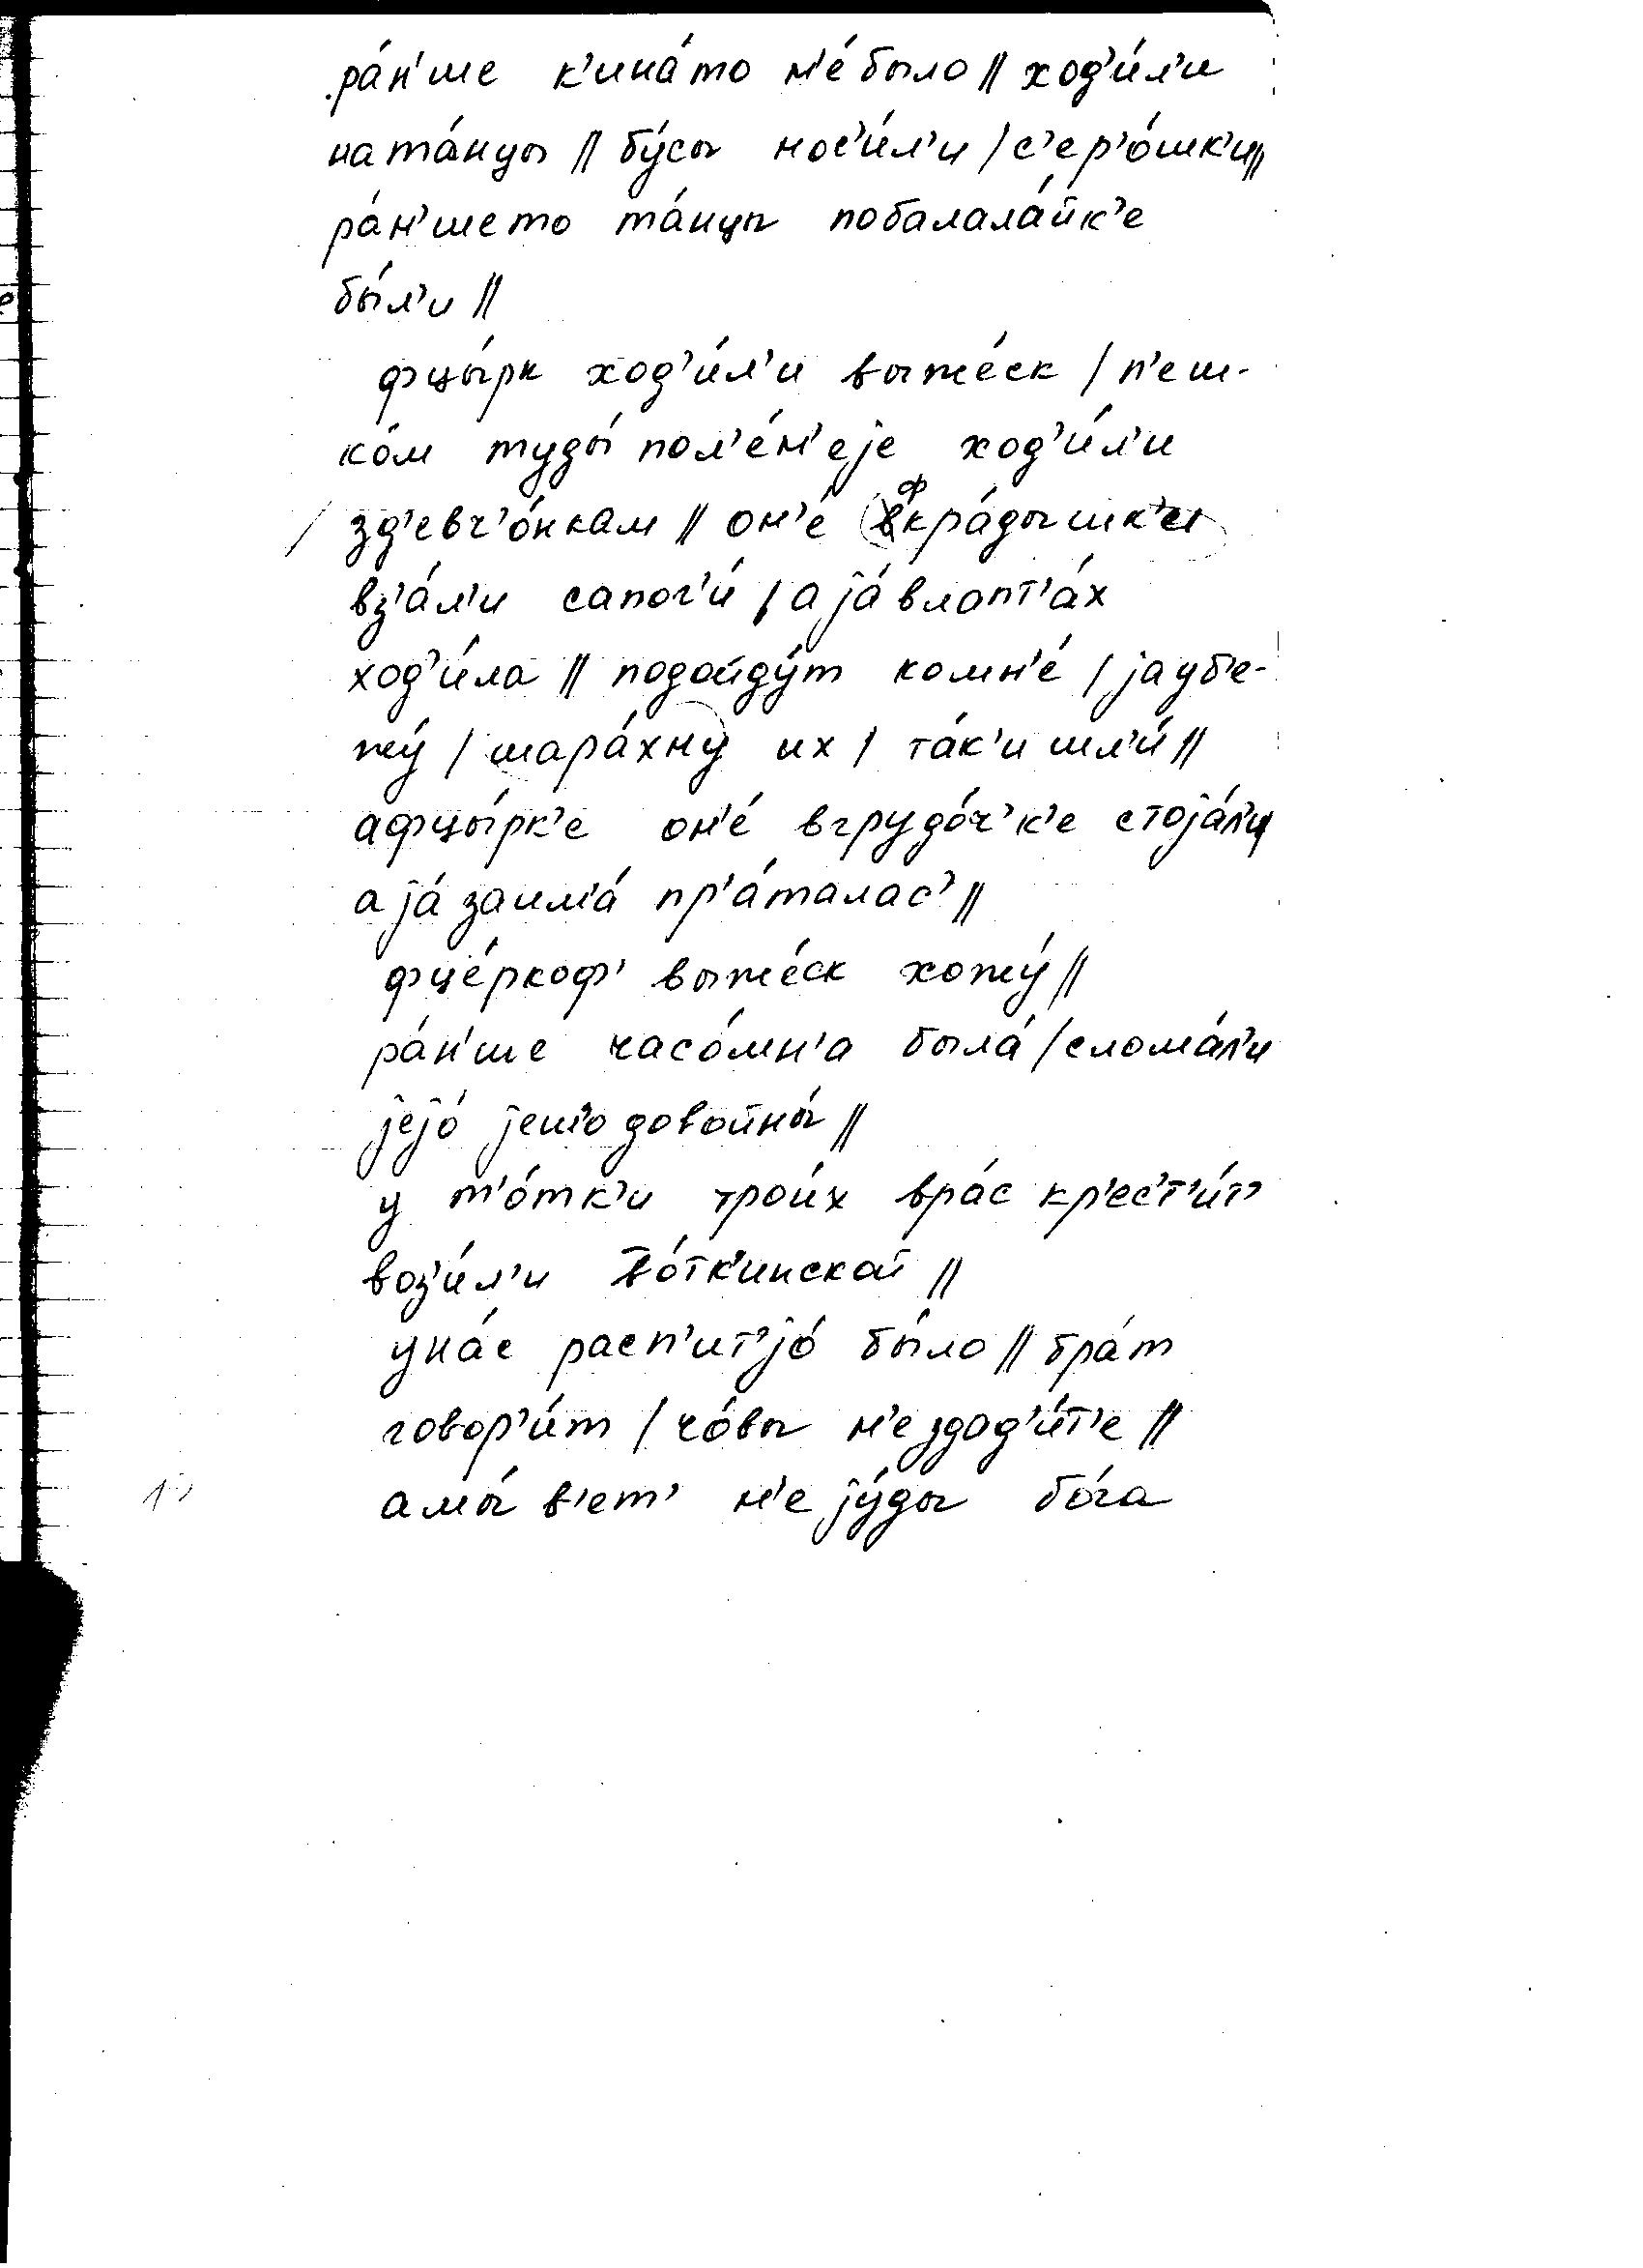 ра́н'ше к'ина́то н'е́было // ход'и́л'и
ната́нцы // бу́сы нос'и́л'и / с'ер'о́шк'и //
ра́н'шето та́нцы побалала́йк'е
бы́л'и //
фцы́рк ход'и́л'и выже́ск / п'еш-
ко́м туды́ пол'е́н'еjе ход'и́л'и
/ зд'евч'о́нкам // он'е́ фкра́дышк'и
вз'а́л'и сапог'и́ / а jа́ влапт'а́х
ход'и́ла // подойду́т комн'е́ / jа уб'е-
жу́ / шара́хну их / та́к'и шл'и́ //
афцы́рк'е он'е́ вгрудо́ч'к'е стоjа́л'и
а jа́ заим'а́ пр'а́талас' //
фце́ркоф' выже́ск хожу́ //
ра́н'ше часо́мн'а была́ / слома́л'и
jеjо́ jешо довойны́ //
у т'о́тк'и трои́х вра́с кр'ес'т'и́т'
воз'и́л'и во́тк'инской //
уна́с расп'ит'jо́ бы́ло // бра́т
говор'и́т / чо́вы н'ездад'и́т'е //
амы́ в'ет' н'е jу́ды бо́га